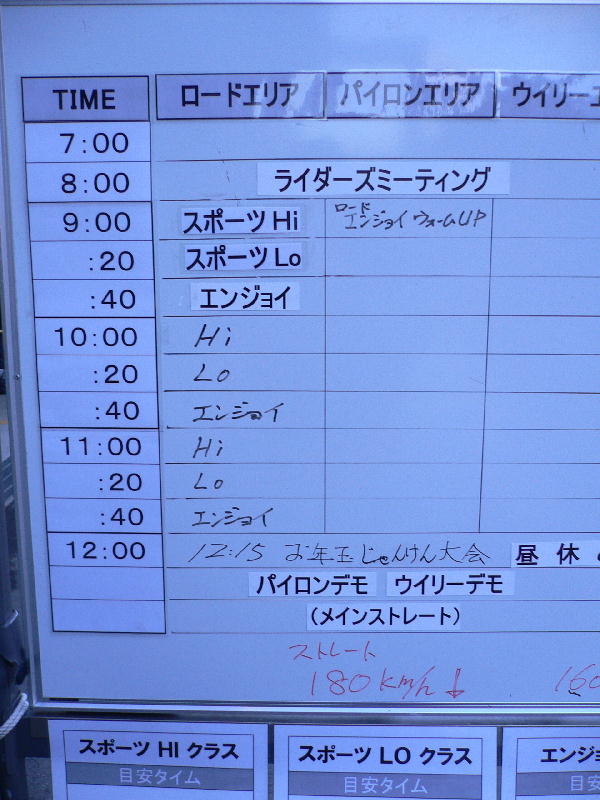 TIME ロードエリア パイロンエリア ウイリーエ
7:00
8:00 ライダーズミーティング
9:00 スポーツ Hi ロード エンジョイ ウォームUP
:20 スポーツ Lo
:40 エンジョイ
10:00 Hi
:20 Lo
:40 エンジョイ
11:00 Hi
:20 Lo
:40 エンジョイ
12:00 12:15 お年玉じゃんけん大会 昼休
パイロンデモ ウイリーデモ
(メインストレート)
ストレート
180 km/h ↓ 160
スポーツ HI クラス スポーツ LO クラス エンジョ
目安タイム 目安タイム 目安